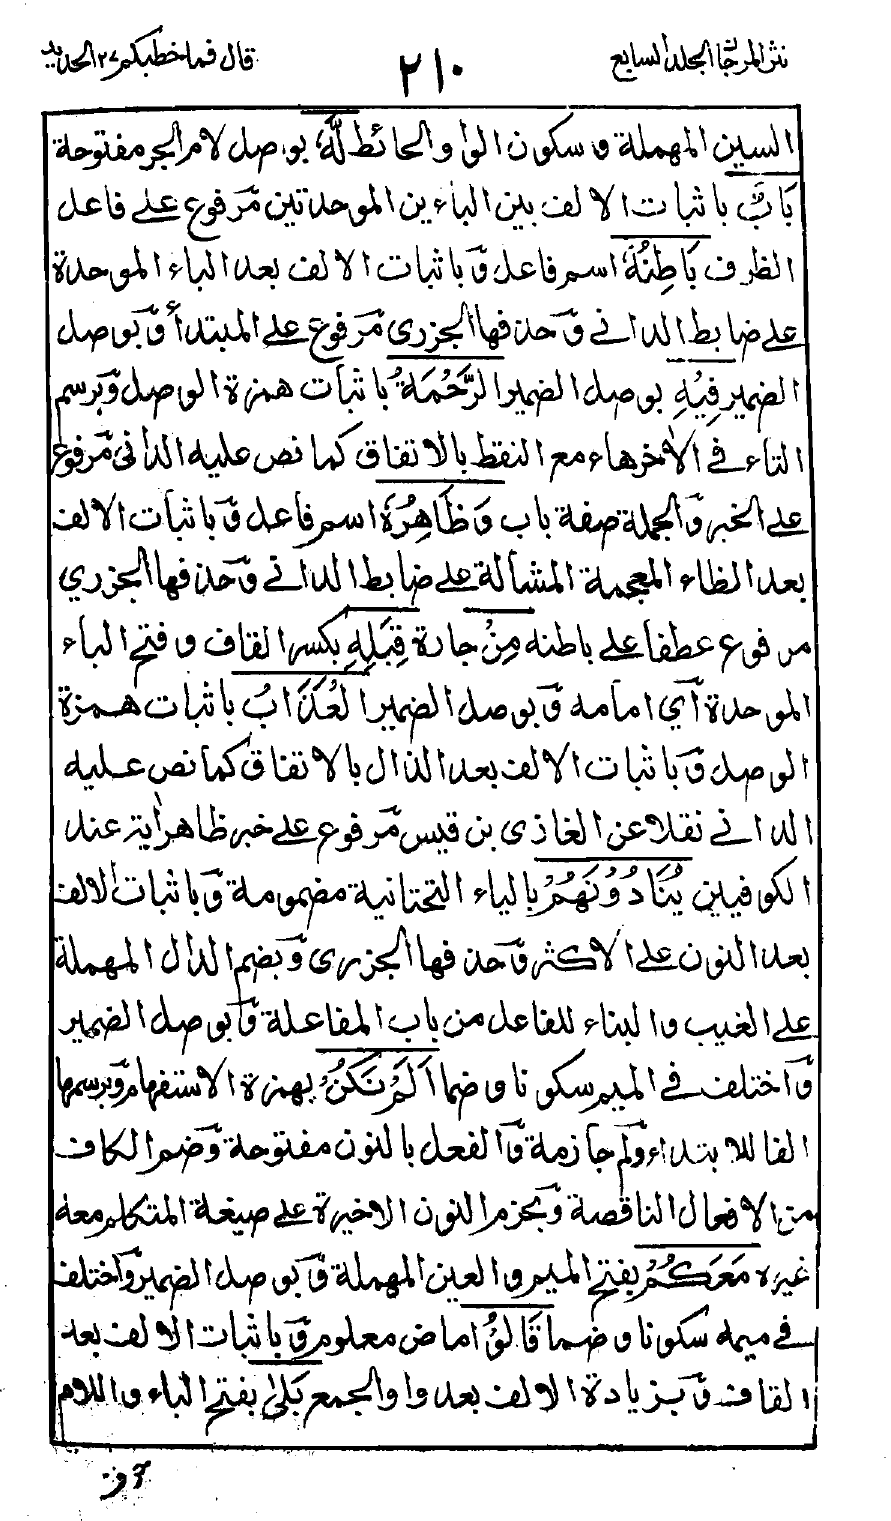 نثر المرجان المجلد السابع
٢١٠
قال فما خطبكم ٢٧ الحديد
السين المهملة و سكون الواو الحائط لَّهُ بوصل لام الجر مفتوحة
بَابٌ باثبات الالف بين الباءين الموحدتين مرفوع على فاعل
الظرف بَاطِنُهُ اسم فاعل و باثبات الالف بعد الباء الموحدة
على ضابط الدانی و حذفها الجزری مرفوع على المبتدأ و بوصل
الضمير فِيْهِ بوصل الضمير الرَّحْمَةُ باثبات همزة الوصل و برسم
التاء فی الآخر هاء مع النقط بالاتفاق كما نص عليه الدانی مرفوع
على الخبر و الجملة صفة باب وَ ظَاهِرُهُ اسم فاعل و باثبات الالف
بعد الظاء المعجمة المشالة على ضابط الدانی و حذفها الجزري
مرفوع عطفا على باطنه مِنْ جارة قِبَلِهِ بكسر القاف و فتح الباء
الموحدة أي امامه و بوصل الضمير الْعَذَابُ باثبات همزة
الوصل و باثبات الالف بعد الذال بالاتفاق كما نص عليه
الدانی نقلا عن الغازی بن قيس مرفوع على خبر ظاهر أية عند
الكوفيين يُنَادُوْنَهُمْ بالياء التحتانية مضمومة و باثبات الالف
بعد النون على الاكثر و حذفها الجزری و بضم الدال المهملة
على الغيب و البناء للفاعل من باب المفاعلة و بوصل الضمير
و اختلف فی الميم سكونا و ضما اَلَمْ نَكُنْ بهمزة الاستفهام و برسمها
الفا للابتداء و لم جازمة و الفعل بالنون مفتوحة و ضم الكاف
من الافعال الناقصة و بجزم النون الاخيرة على صيغة المتكلم معه
غيره مَعَكُمْ بفتح الميم و العين المهملة و بوصل الضمير و اختلف
فی ميمه سكونا و ضما قَالُوْا ماض معلوم و باثبات الالف بعد
القاف و بزيادة الالف بعد واو الجمع بَلٰی بفتح الباء و اللام